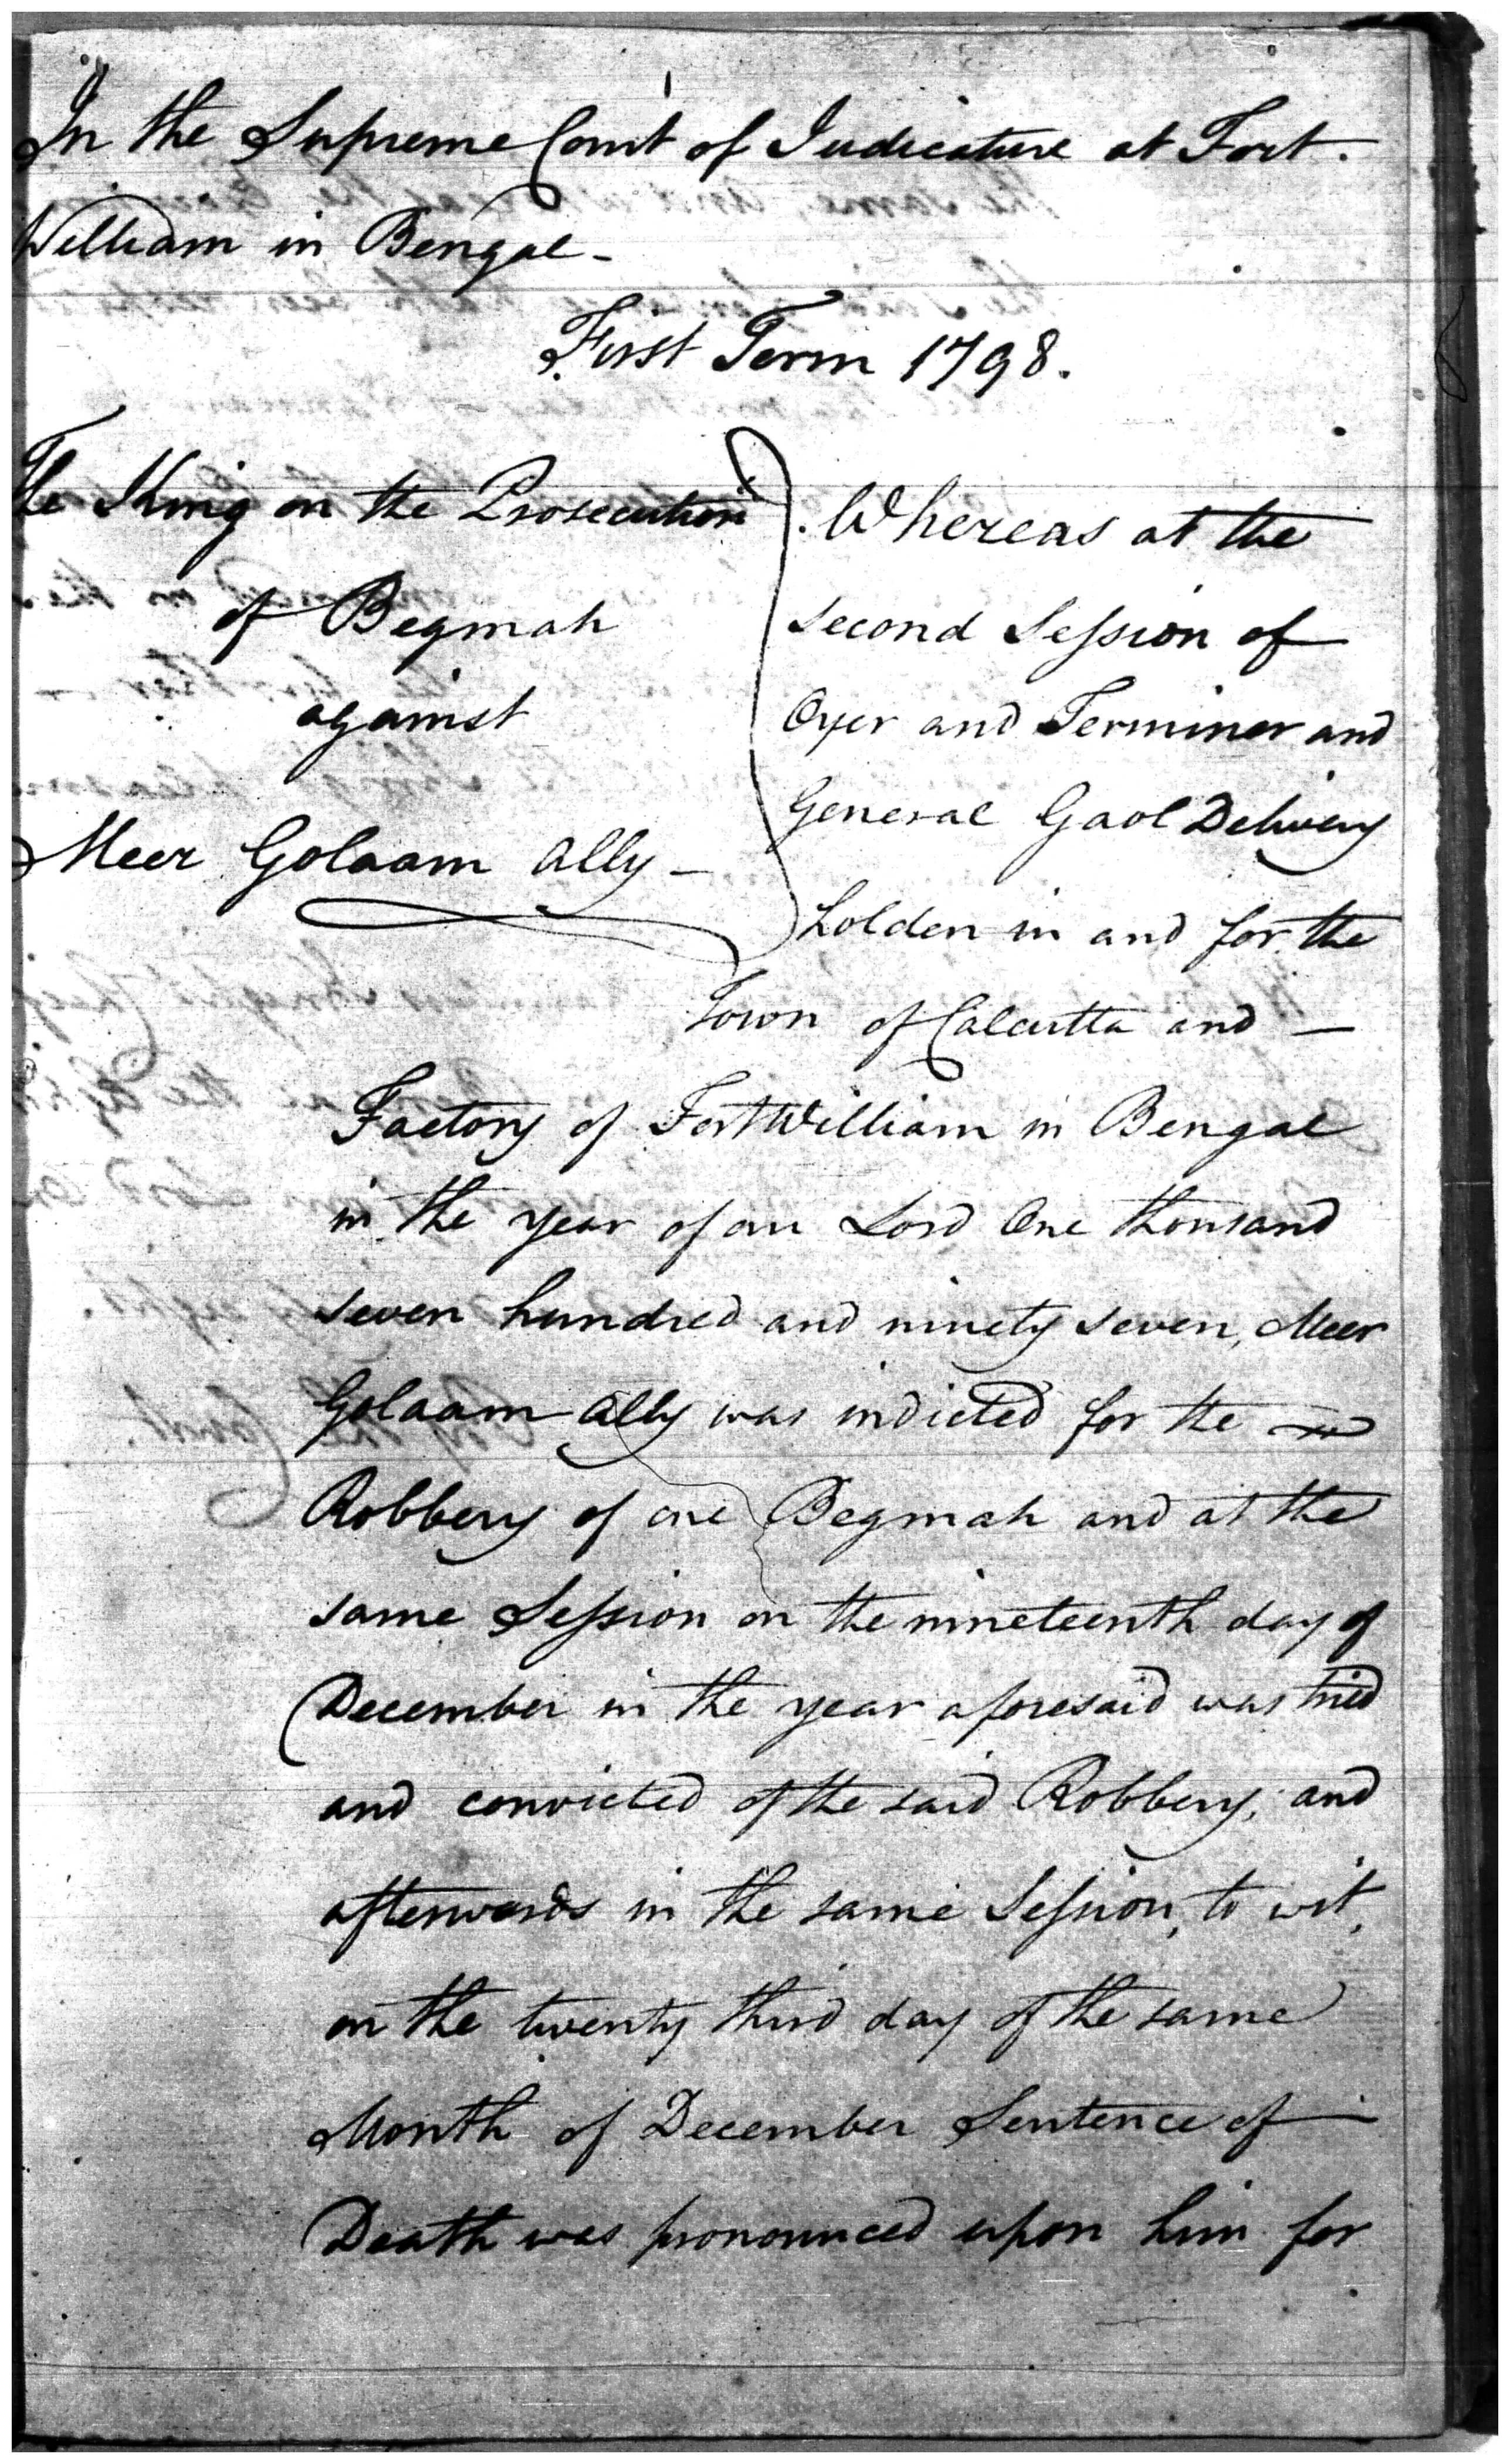 In the Supreme Court of Judicature at Fort
William in Bengal
First Term 1798.
The King on the Prosecution
of Begmah
against
Meer Golaam Ally
Whereas at the
second Session of
Oyer and Terminer and
General Gaol Delivery
holden in and for the
Town of Calcutta and
Factory of Fort William in Bengal
in the year of our Lord One thousand
seven hundred and ninety seven, Meer
Golaam Ally was indicted for the
Robbery of one Begmah and at the
same Session on the nineteenth day of
December in the year aforesaid was tried
and convicted of the said Robbery; and
afterwards in the same Session, to wit,
on the twenty third day of the same
Month of December Sentence of
Death was pronounced upon him for